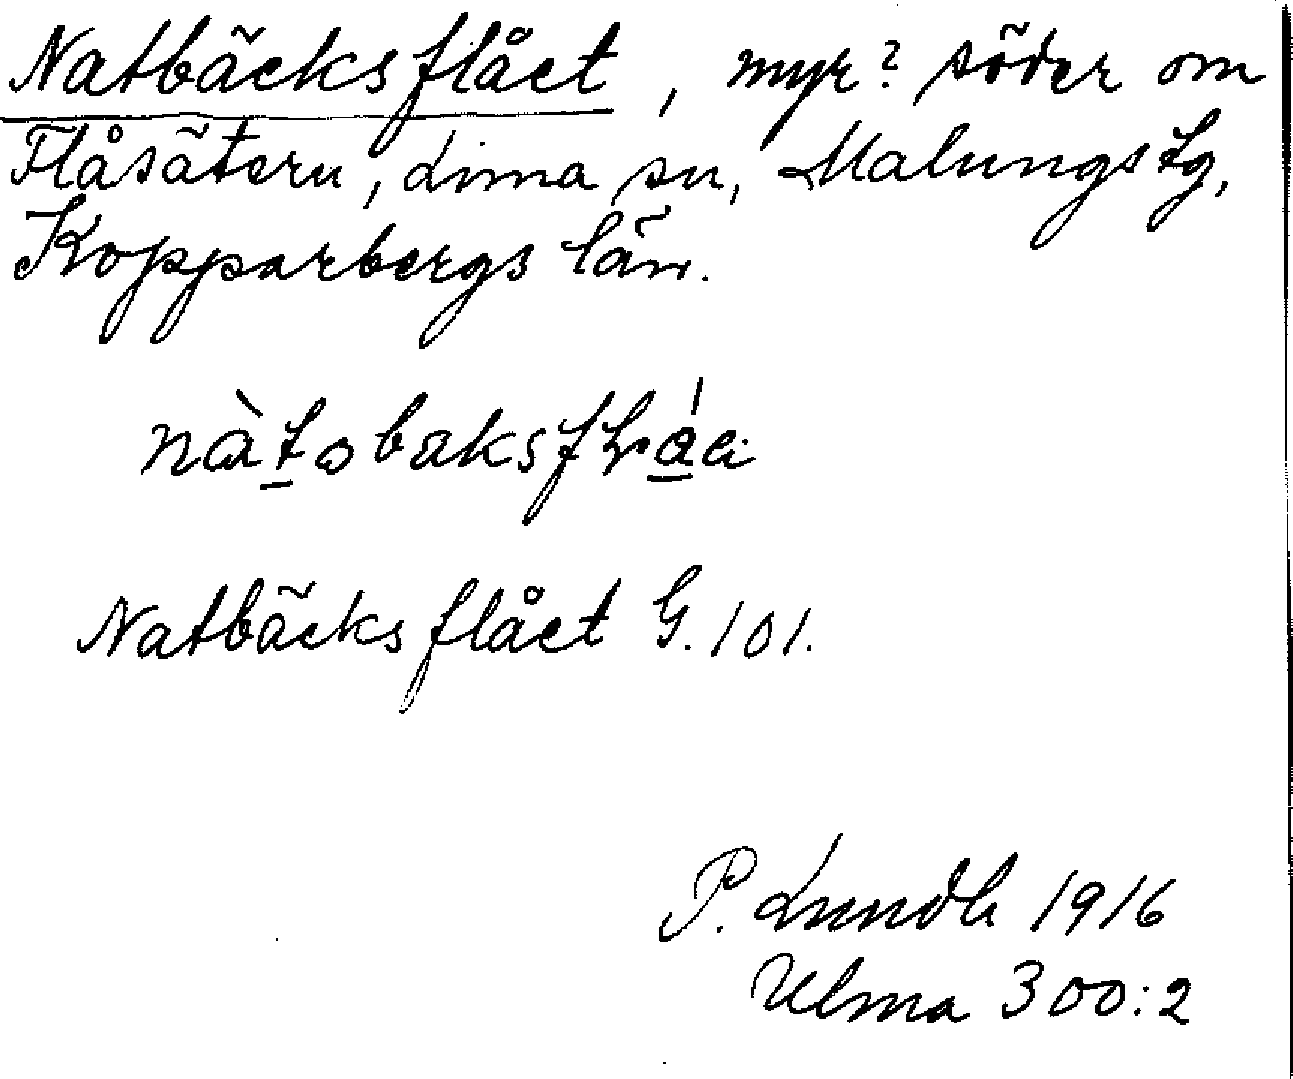 Natbäcksflået, myr? söder om
Flåsätern, Lima sn, Malungs tg,
Kopparbergs län.
Natbäcksflået G.101.
P. Lundh 1916
Ulma 300:2